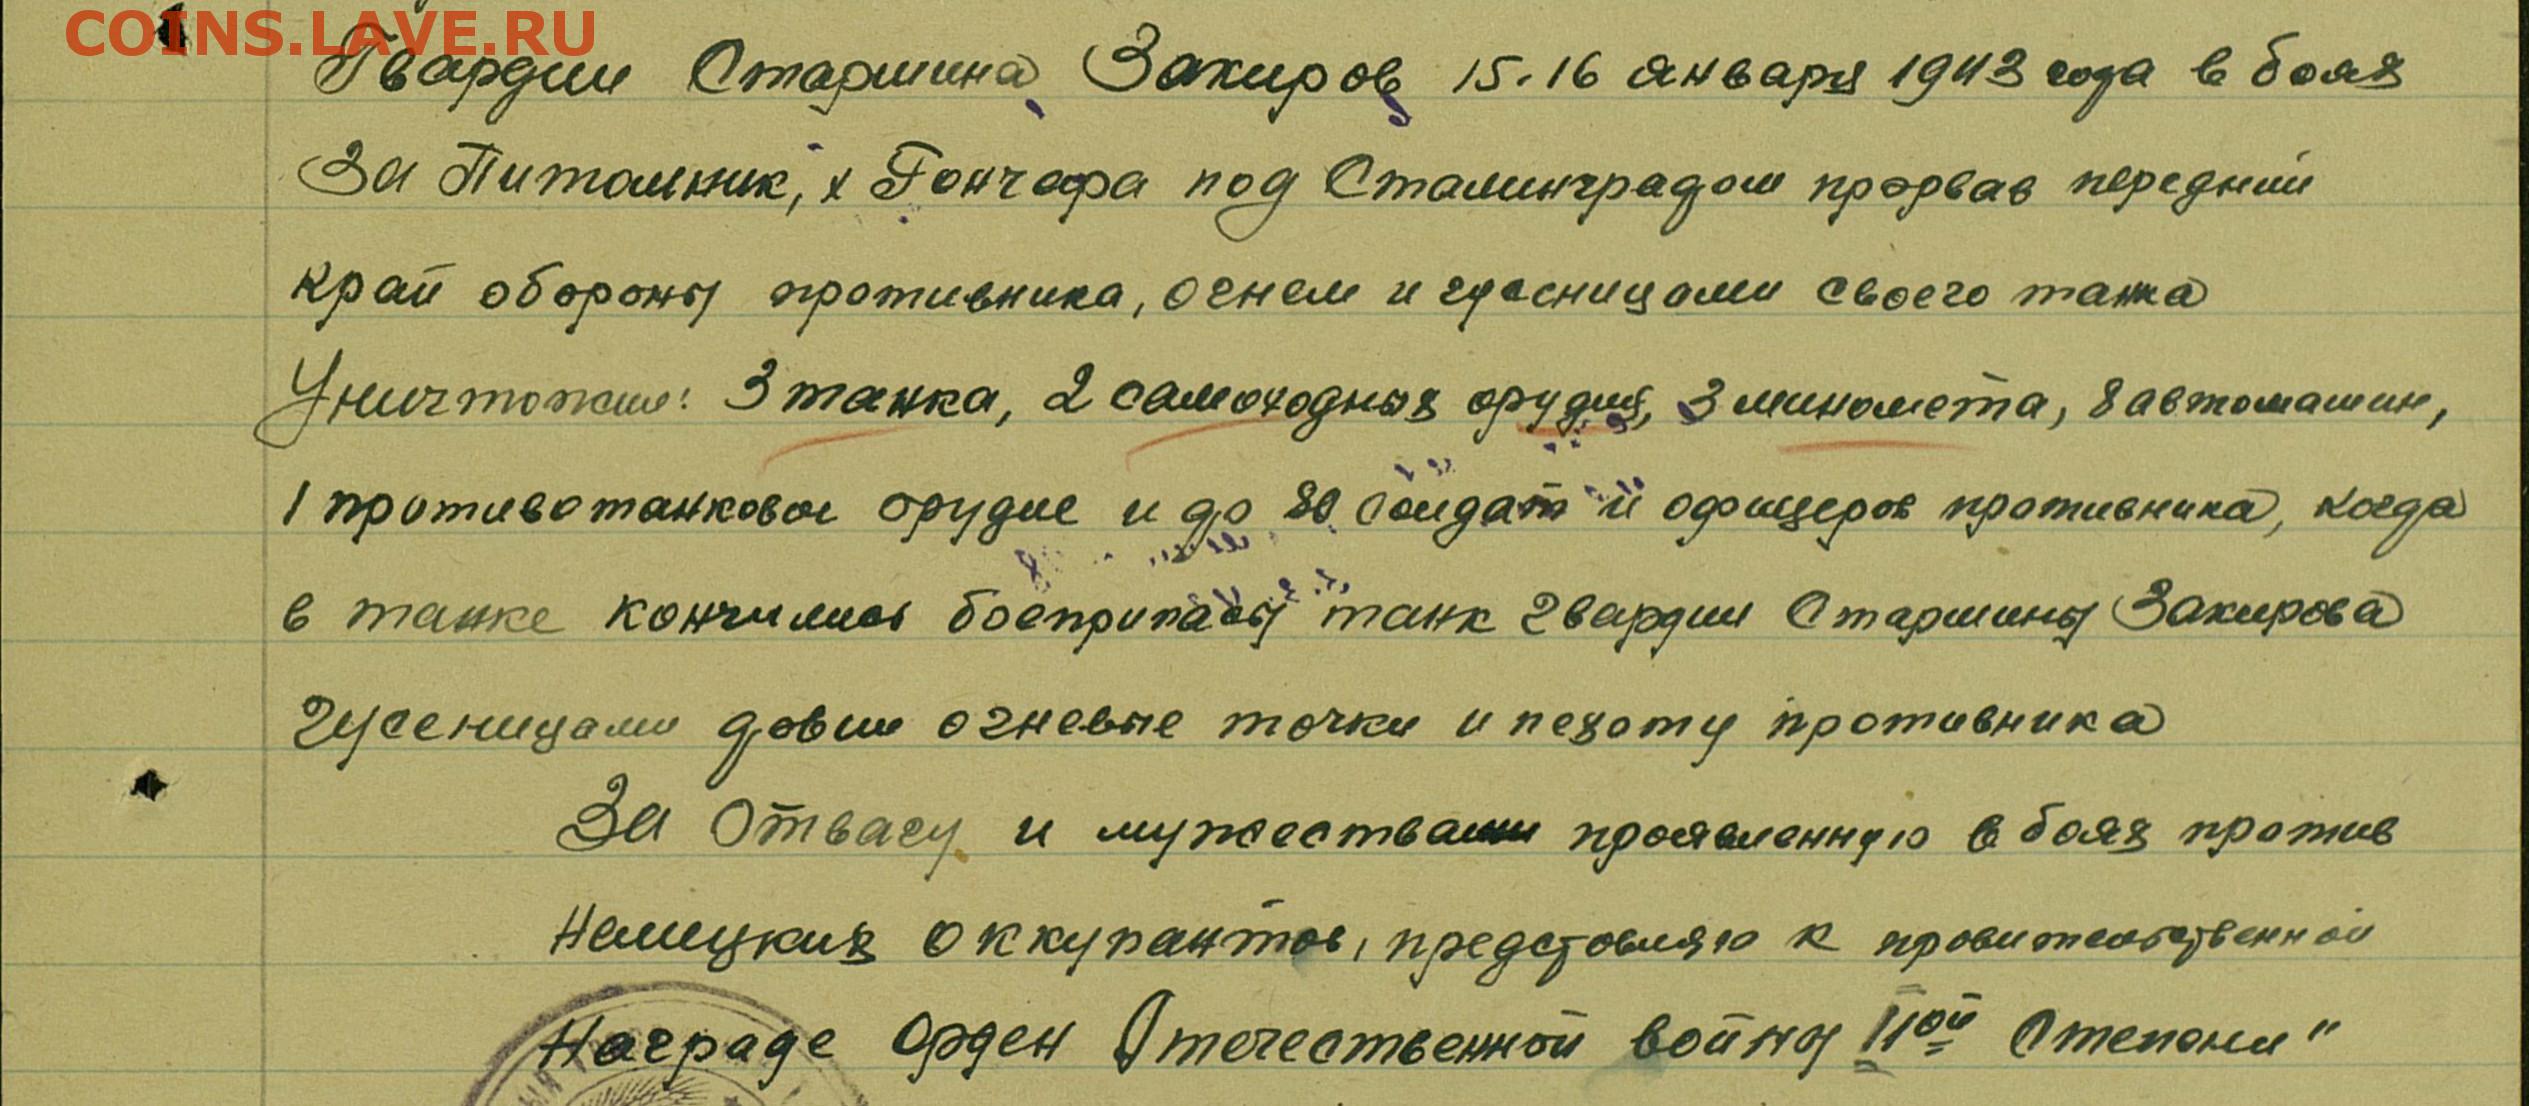 COINS.LAVE.RU
Гвардии Старшина Закиров 15.16 января 1943 года в боях
За Питомник, х Гончара под Сталинградом прорвав передний
край обороны противника, огнем и гусеницами своего танка
Уничтожил: 3 танка, 2 самоходных орудия, 3 миномета, 8 автомашин,
1 противотанковое орудие и до 80 солдат и офицеров противника, когда
в танке кончились боеприпасы танк гвардии Старшины Закирова
гусеницами довил огневые точки и пехоту противника
За Отвагу и мужества проявленную в боях против
Немецких оккупантов, представляю к провительственной
Награде Орден Отечественной войны II ой Степени"